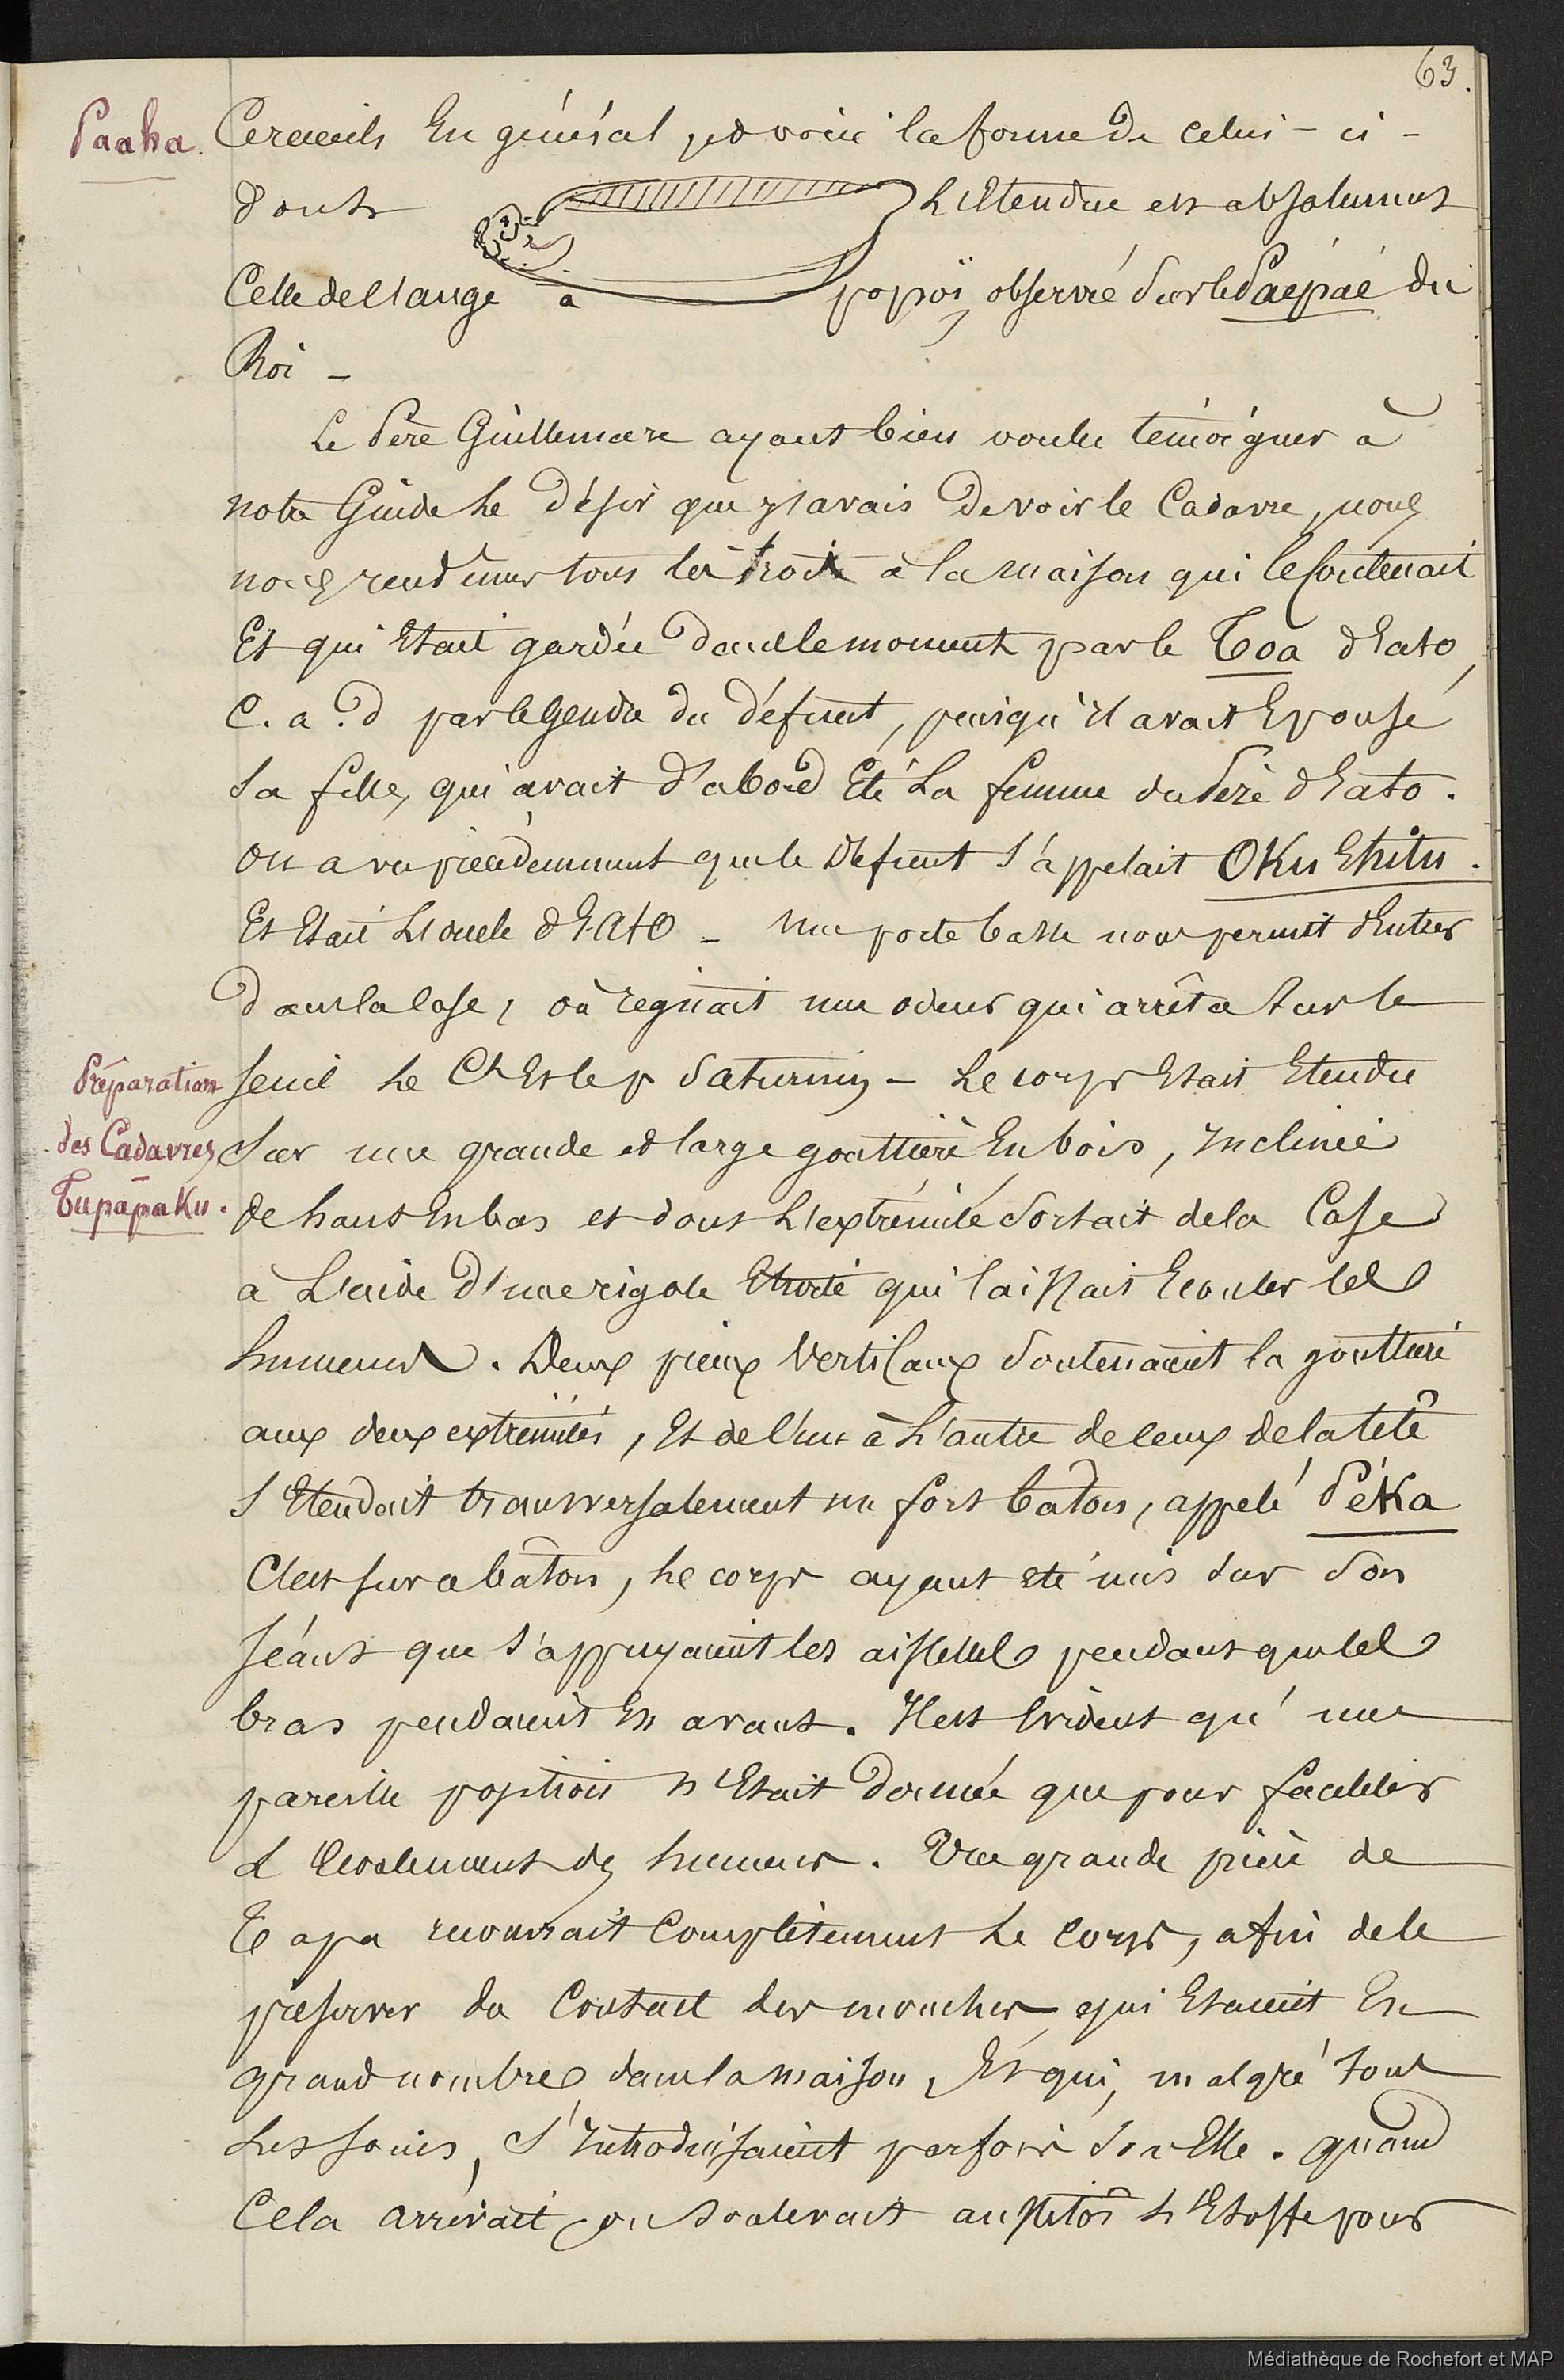 63.
Paaha. Cercueils En général, et voici la forme de celui-ci -
dont L'Etendue est absolument
Celle de l'auge à popoï, observé sur le Paépaé du
Roi -
Le Père Guillemare ayant bien voulu témoigner à
notre Guide Le désir que j'avais de voir le Cadavre, nous
nous rendîmes tous les trois à la maison qui le contenait
Et qui Etait gardée dans le moment par le Toa d'Eato,
C. a. d par le gendre du défunt, puisqu'il avait Epousé
Sa fille, qui avait d'abord Eté La femme du Père d'Eato.
on a vu précédemment que le Défunt s'appelait OKu Ehitu.
Et Etait L'oncle d'Eato - une porte basse nous permit d'Entrer
dans la case, où régnait une odeur qui arrêta sur le
Préparation seuil Le Ch Et le p Saturnin - Le corps Etait Etendu
des Cadavres, sur une grande et large gouttière En bois, Inclinée
TupapaKu. de haut En bas et dont L'extrémité sortait de la Case
à L'aide d'une rigole Etroite qui laissait Ecouler les
humeurs. Deux pieux Verticaux soutenaient la gouttière
aux deux extrémités, Et de l'un à L'autre de ceux de la tête
s'Etendait transversalement un fort bâton, appelé PéKa
C'est sur ce bâton, Le corps ayant eté mis sur son
séant que s'appuyaient les aisselles pendant que les
bras pendaient En avant. Il est Evident qu'une
pareille position n'Etait donnée que pour faciliter
L'Ecoulement des humeurs. Une grande pièce de
Tapa recouvrait Complètement Le Corps, afin de le
préserver du Contact des mouches qui Etaient En
grand nombre dans la maison, Et qui, malgré tous
Les soins, s'Introduisaient parfois sous Elle. quand
Cela arrivait, on soulevait aussitôt L'Etoffe pour
Médiathèque de Rochefort et MAP